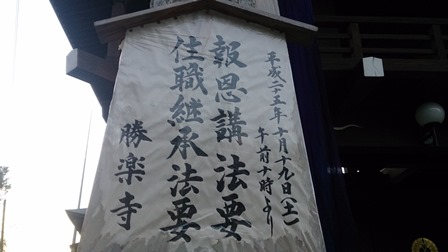 平成二十五年十月十九日(土)
午前十時より
報恩講法要
住職継承法要
勝楽寺